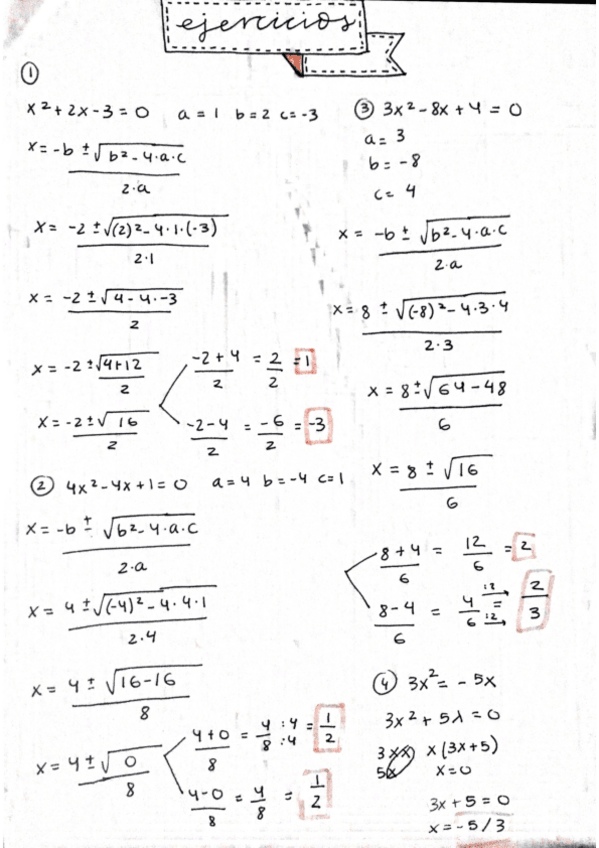 ejercicios
①
x²+2x-3=0 a=1 b=2 c=-3
x=-b±√b²-4·a·c
2·a
x= -2±√(2)²-4·1·(-3)
2·1
x= -2±√4-4·-3
2
x= -2±√4+12
2
x= -2±√16
2
-2+4 = 2 =1
2 2
-2-4 = -6 = -3
2 2
② 4x²-4x+1=0 a=4 b=-4 c=1
x=-b±√b²-4·a·c
2·a
x= 4±√(-4)²-4·4·1
2·4
x= 4±√16-16
8
x=4±√0
8
4+0 = 4 :4 = 1
8 8 :4 2
4-0 = 4 = 1
8 8 2
③ 3x²-8x+4=0
a= 3
b= -8
c= 4
x= -b±√b²-4·a·c
2·a
x= 8±√(-8)²-4·3·4
2·3
x= 8±√64-48
6
x= 8±√16
6
8+4 = 12 = 2
6 6
8-4 = 4 :2 = 2
6 6 :2 3
④ 3x²= -5x
3x²+5x=0
3xx x(3x+5)
5x x=0
3x+5=0
x=-5/3